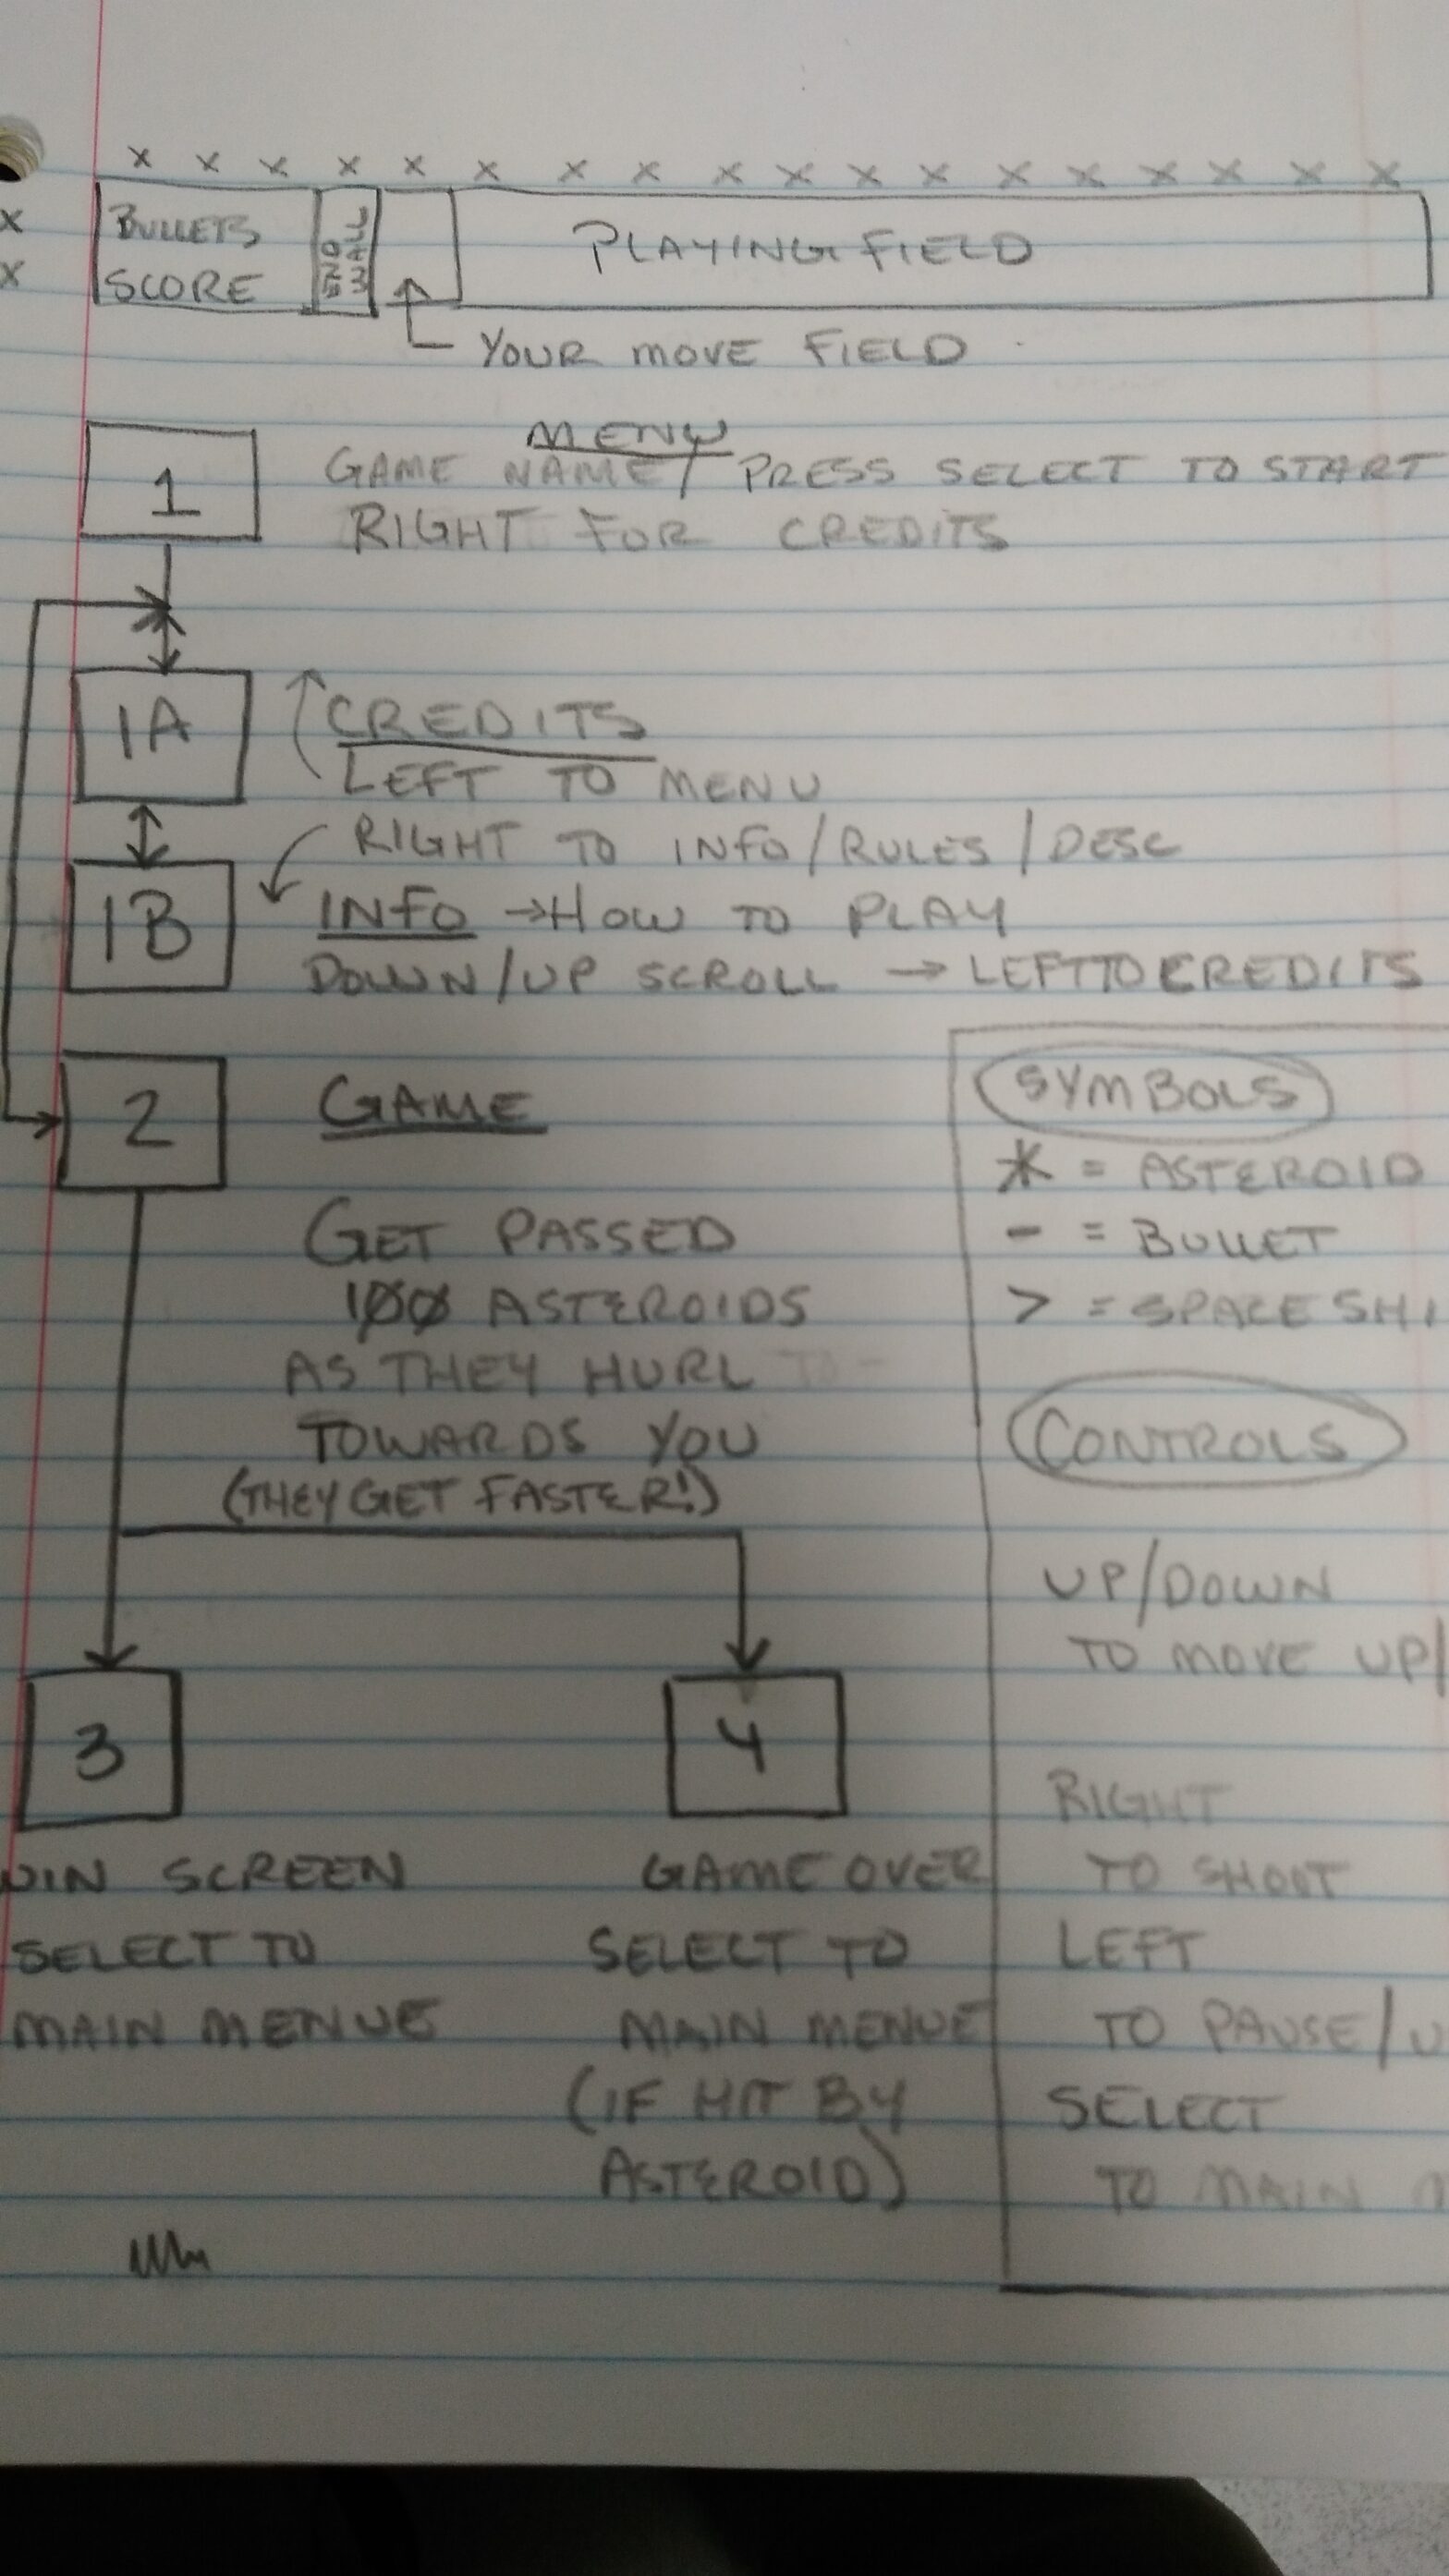 x x x x x x x x x x x x x x x x x x
x
x
BULLETS
SCORE
END
WALL
PLAYING FIELD
YOUR MOVE FIELD
MENU
1
GAME NAME / PRESS SELECT TO START
RIGHT FOR CREDITS
1A
CREDITS
LEFT TO MENU
RIGHT TO INFO/RULES/DESC
1B
INFO →HOW TO PLAY
DOWN/UP SCROLL → LEFT TO CREDITS
2
GAME
GET PASSED
100 ASTEROIDS
AS THEY HURL
TOWARDS YOU
(THEY GET FASTER!)
SYMBOLS
* = ASTEROID
- = BULLET
> = SPACE SHI
CONTROLS
UP/DOWN
TO MOVE UP/
RIGHT
TO SHOOT
LEFT
TO PAUSE/U
SELECT
TO MAIN
3
WIN SCREEN
SELECT TO
MAIN MENUE
4
GAME OVER
SELECT TO
MAIN MENUE
(IF HIT BY
ASTEROID)